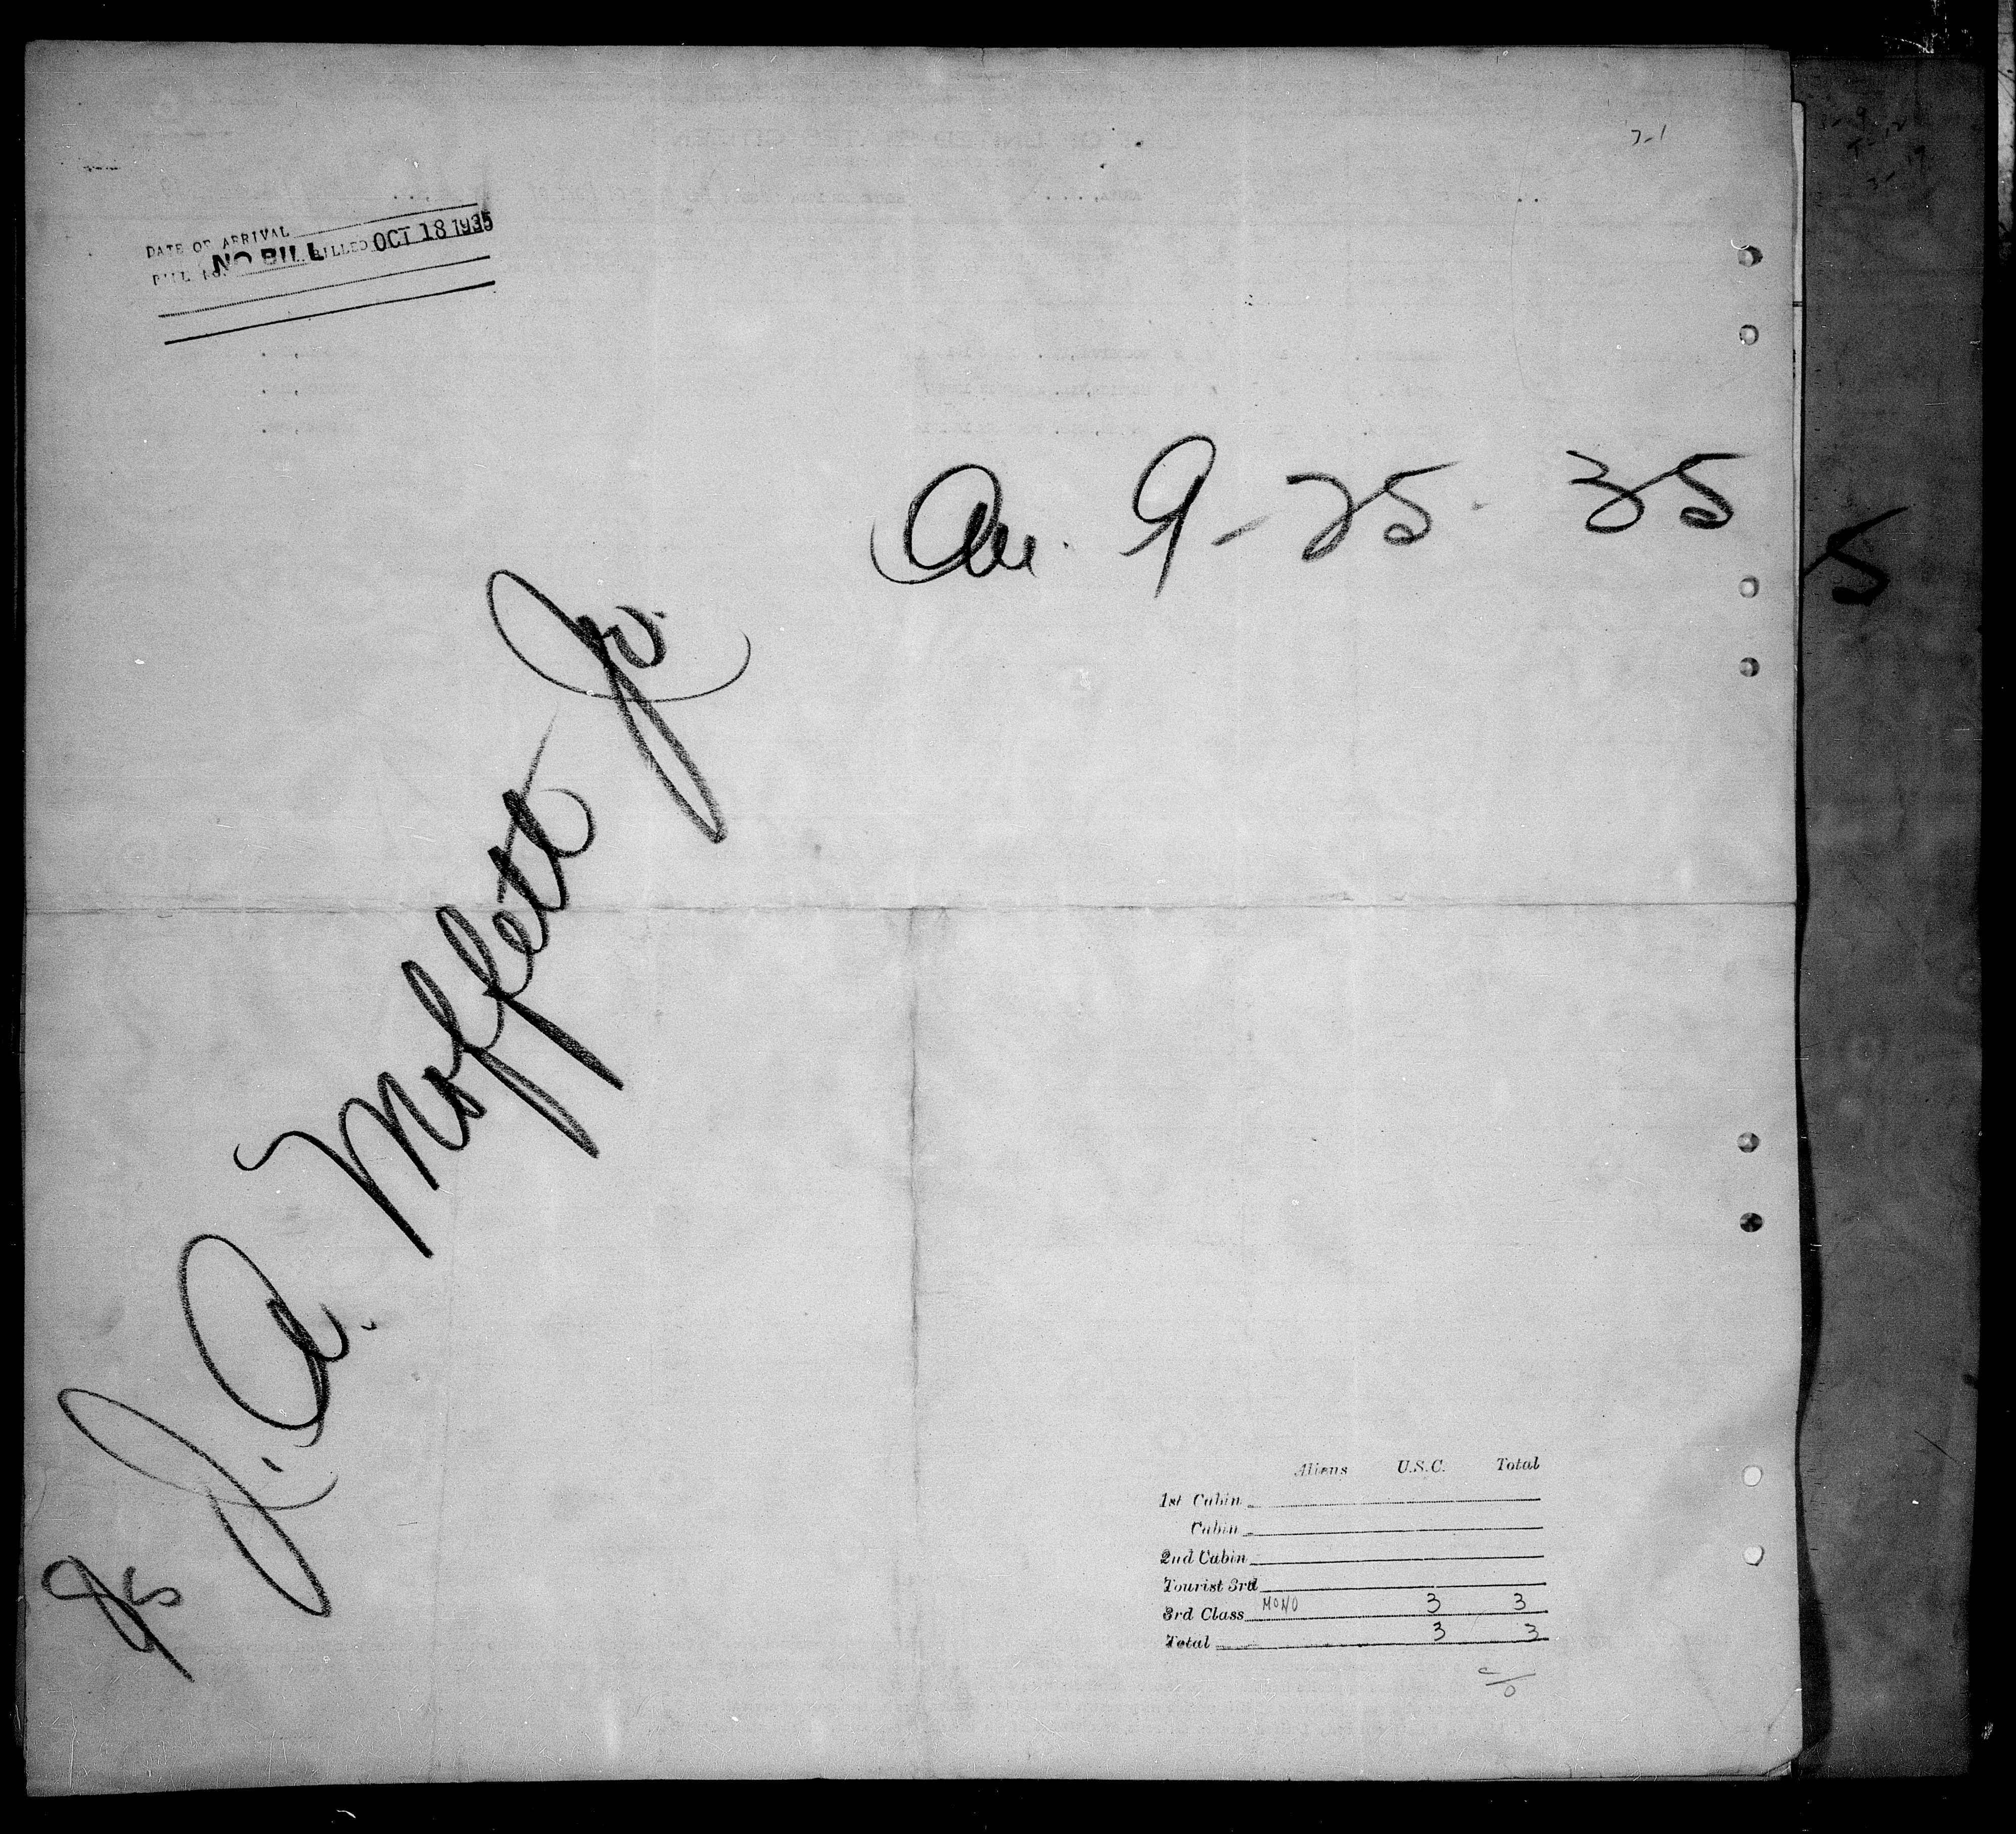 3-1
DATE OF ARRIVAL
BILL NO. NO BILL BILLED OCT 18 1935
Arr. 9-25-35
SS J. A. Moffett Jr.
Aliens U.S.C. Total
1st Cabin
Cabin
2nd Cabin
Tourist 3rd
3rd Class MONO 3 3
Total 3 3
c/o